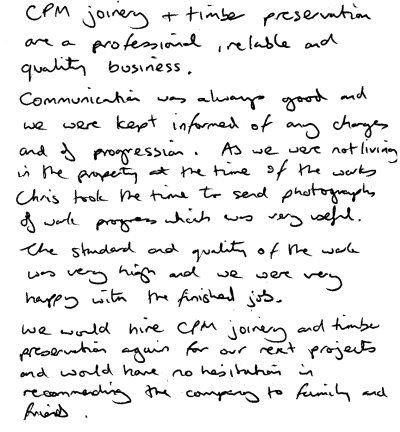 CPM joinery + timber preservation
are a professional, reliable and
quality business.
Communication was always good and
we were kept informed of any changes
and of progression. As we were not living
in the property at the time of the works
Chris took the time to send photographs
of work progress which was very useful.
The standard and quality of the work
was very high and we were very
happy with the finished job.
We would hire CPM joinery and timber
preservation again for our next projects
and would have no hesitation in
recommending the company to family and
friends.